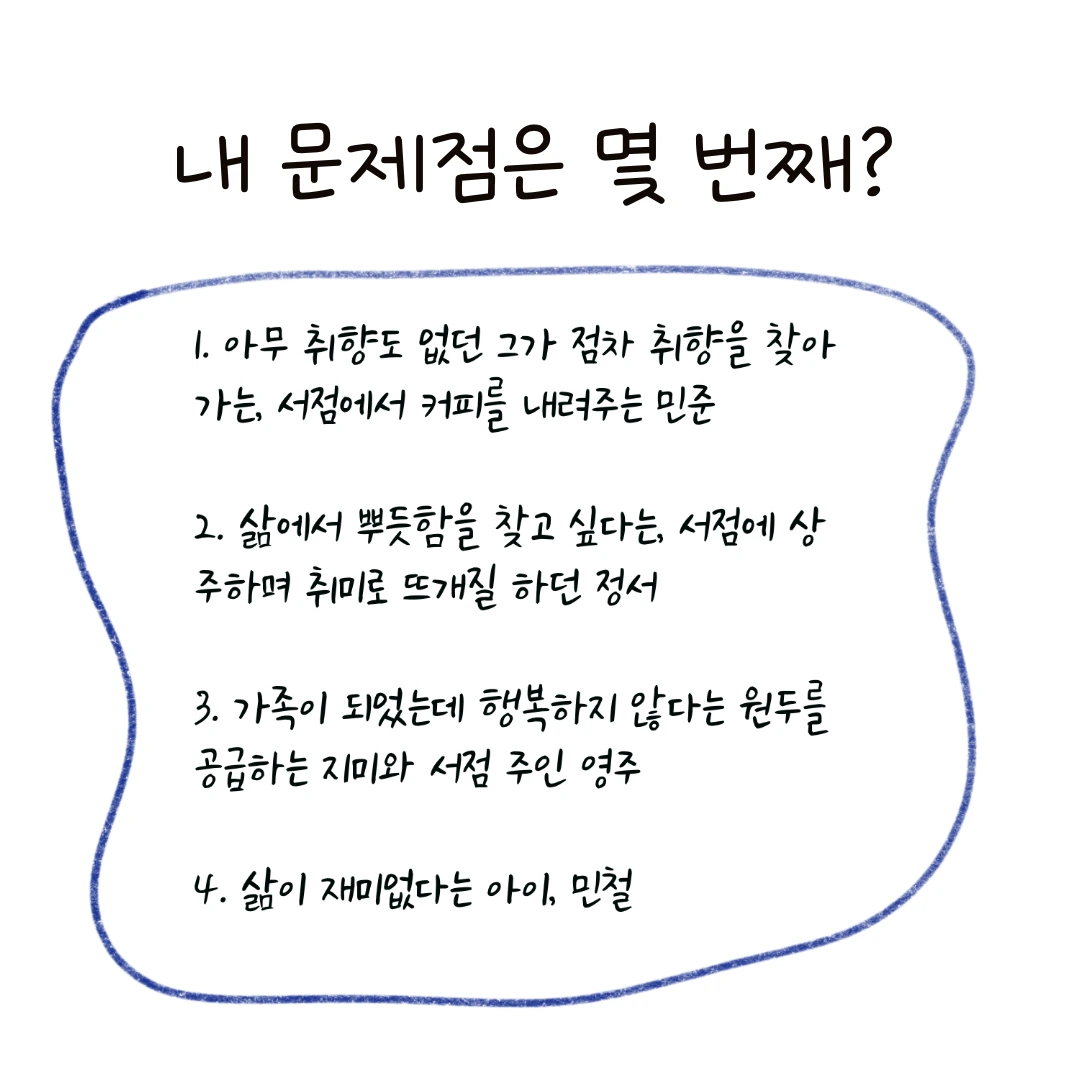 내 문제점은 몇 번째?
1. 아무 취향도 없던 그가 점차 취향을 찾아
가는, 서점에서 커피를 내려주는 민준
2. 삶에서 뿌듯함을 찾고 싶다는, 서점에 상
주하며 취미로 뜨개질 하던 정서
3. 가족이 되었는데 행복하지 않다는 원두를
공급하는 지미와 서점 주인 영주
4. 삶이 재미없다는 아이, 민철